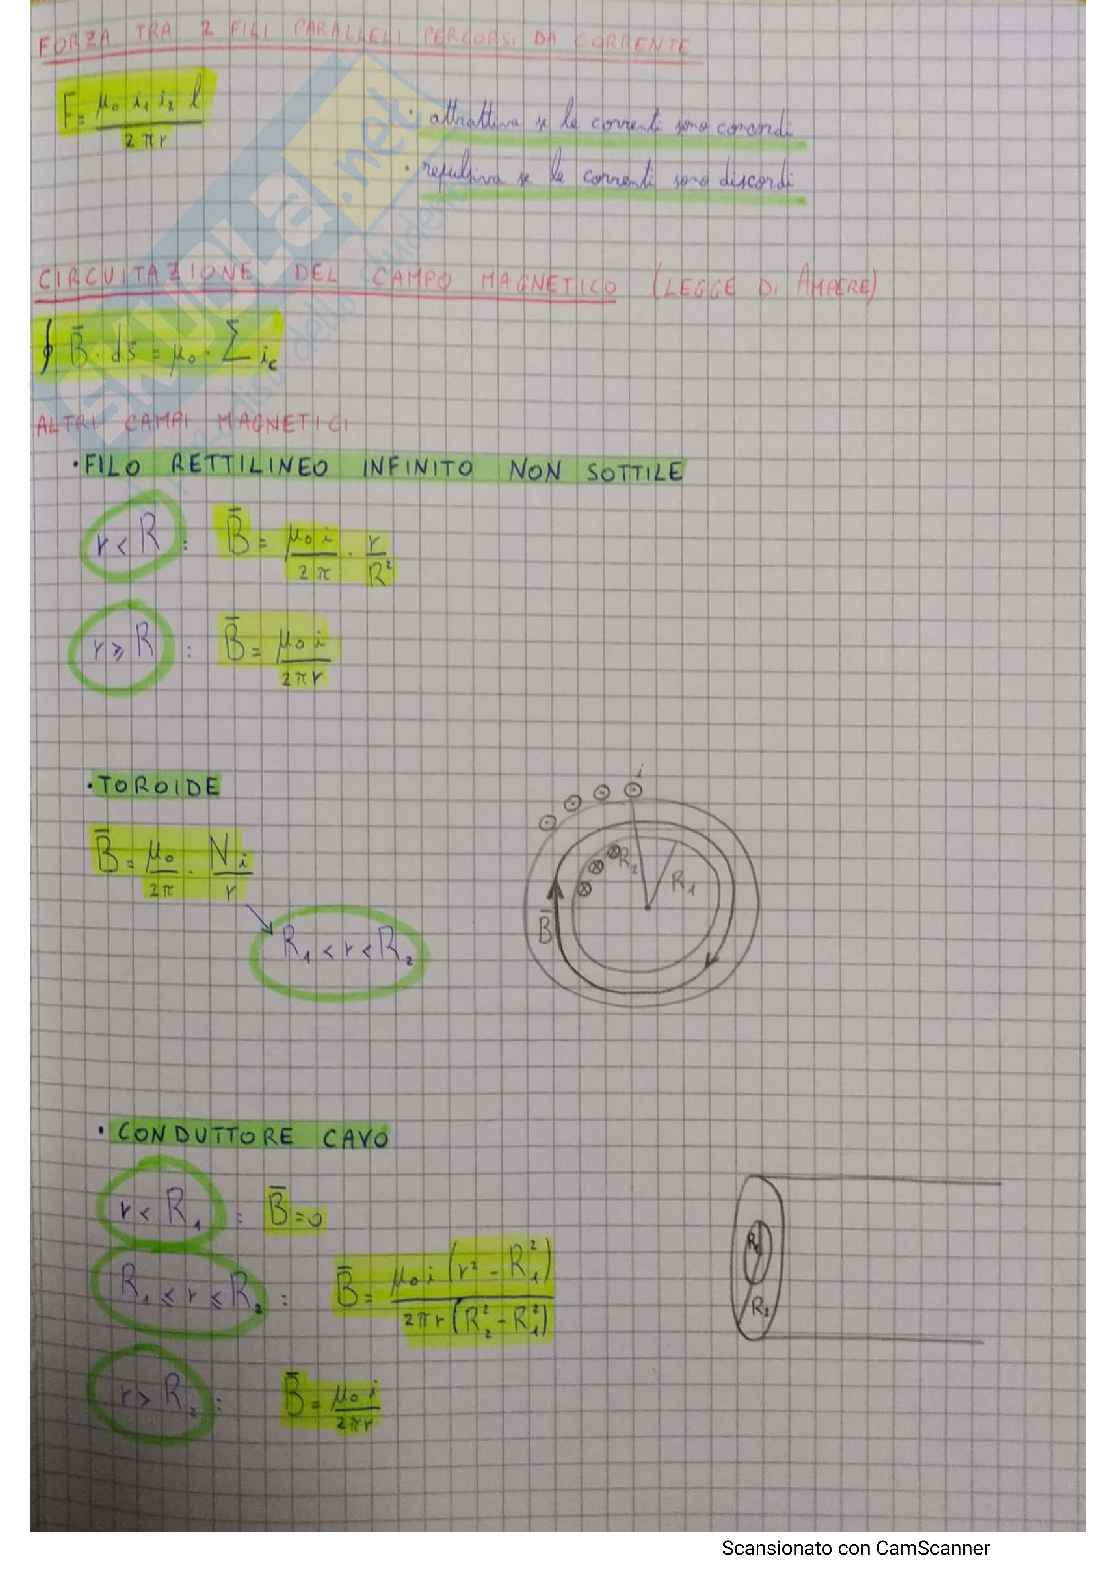 FORZA TRA 2 FILI PARALLELI PERCORSI DA CORRENTE
F = μ₀ i₁ i₂ l / 2πr
· attrattiva se le correnti sono concordi
· repulsiva se le correnti sono discordi
SKUOLA.net
CIRCUITAZIONE DEL CAMPO MAGNETICO (LEGGE DI AMPERE)
∮ B̄ · ds̄ = μ₀ · Σ i_c
ALTRI CAMPI MAGNETICI
· FILO RETTILINEO INFINITO NON SOTTILE
r < R : B̄ = μ₀ i / 2π · r / R²
r ⩾ R : B̄ = μ₀ i / 2πr
· TOROIDE
i
B̄ = μ₀ / 2π · N i / r
R₂
R₁
B̄
R₁ < r < R₂
· CONDUTTORE CAVO
r < R₁ : B̄ = 0
R₁ ⩽ r ⩽ R₂ : B̄ = μ₀ i (r² - R₁²) / 2πr (R₂² - R₁²)
R₁
R₂
r > R₂ : B̄ = μ₀ i / 2πr
Scansionato con CamScanner